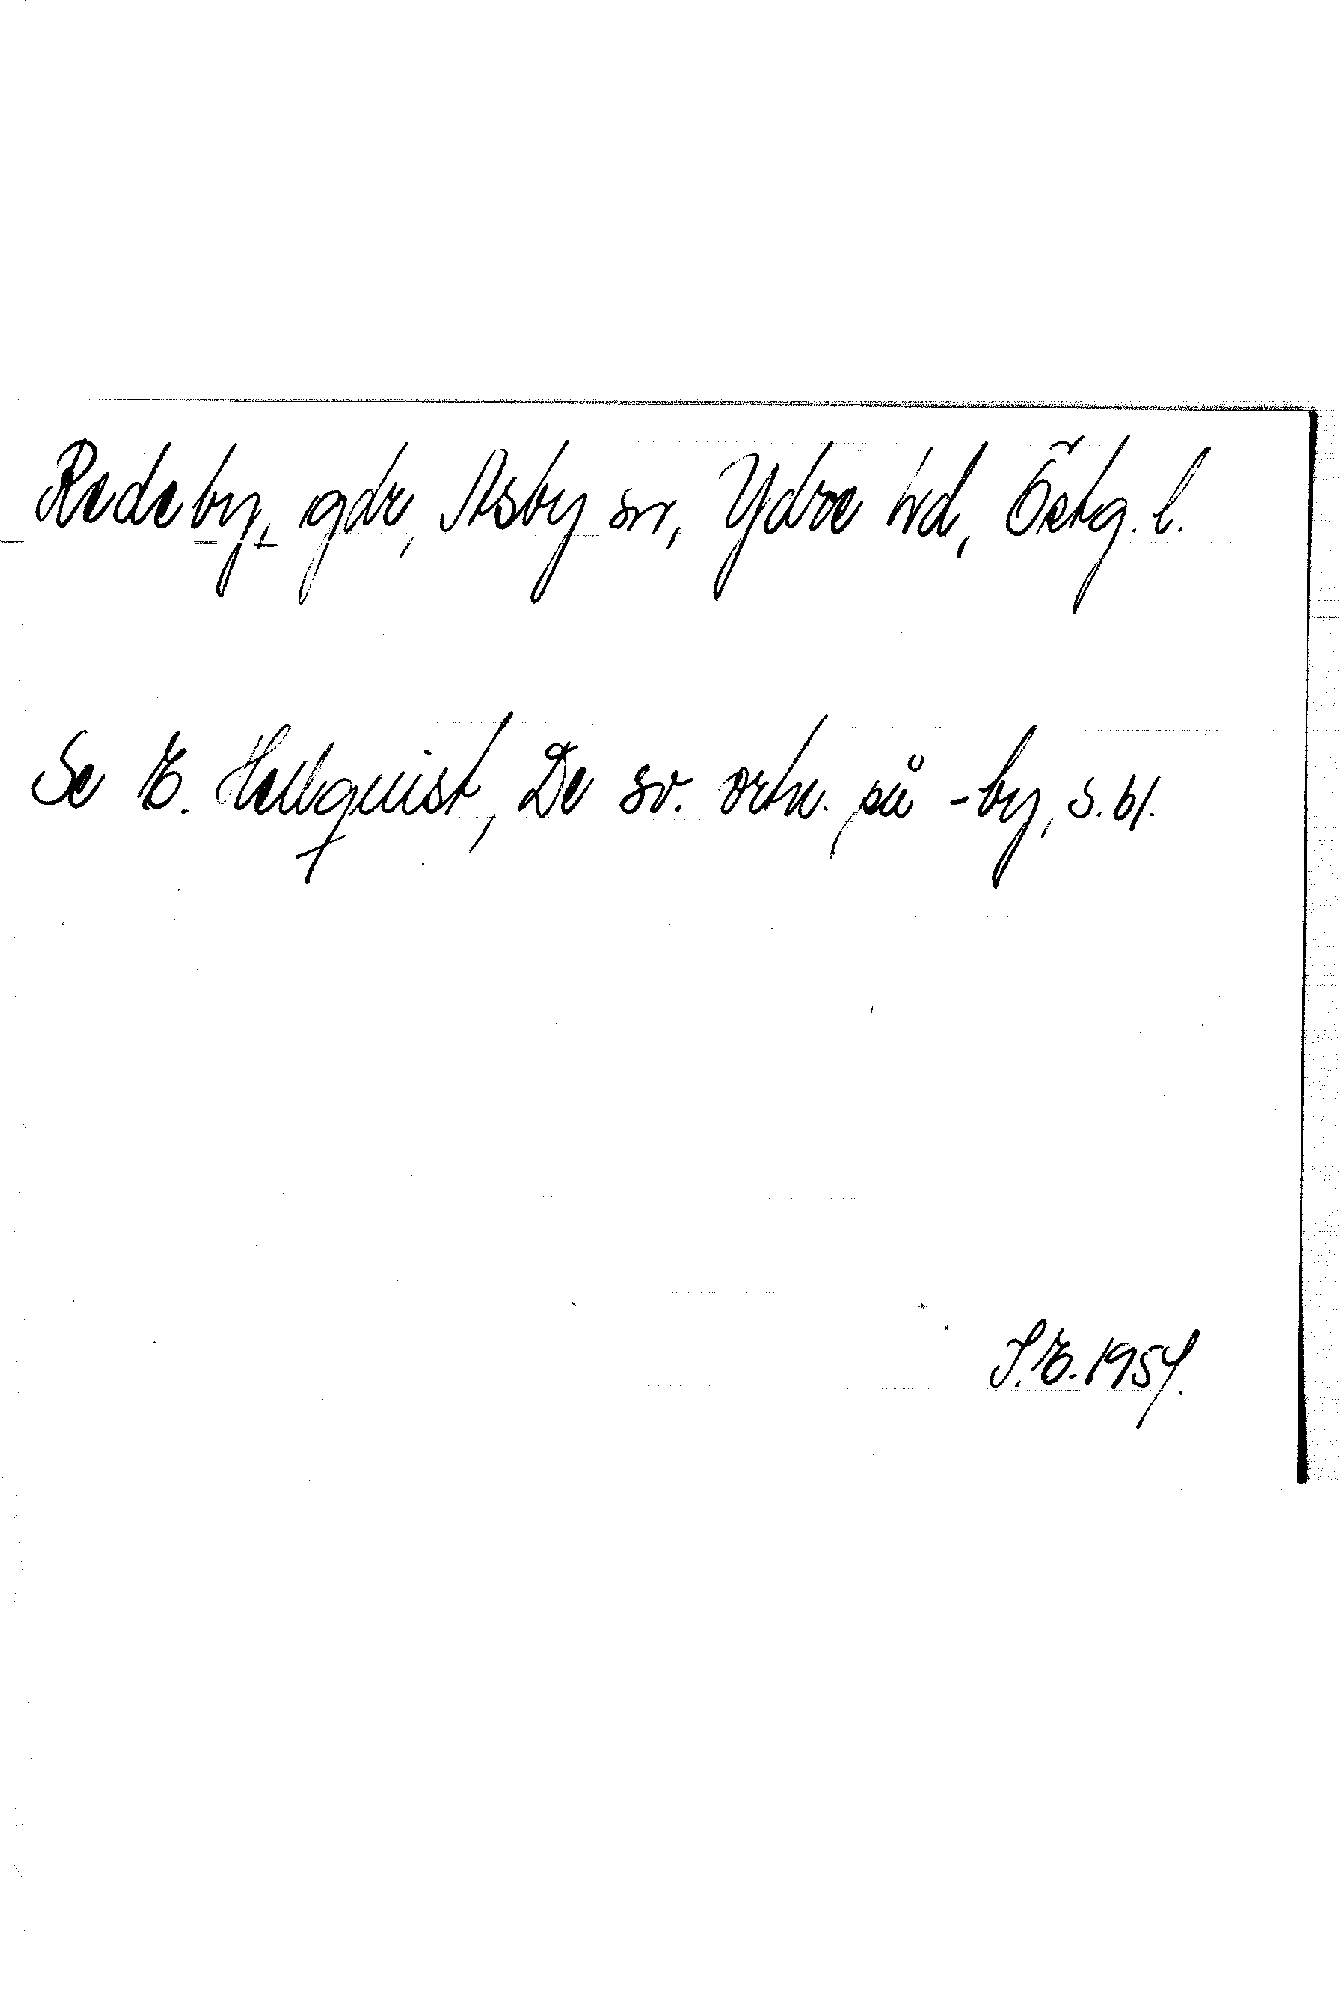 Redeby, gdr, Asby sn, Ydre hd, Östg. l.
Se E. Hellquist, De sv. ortn. på -by, s. 61.
S.E. 1954.